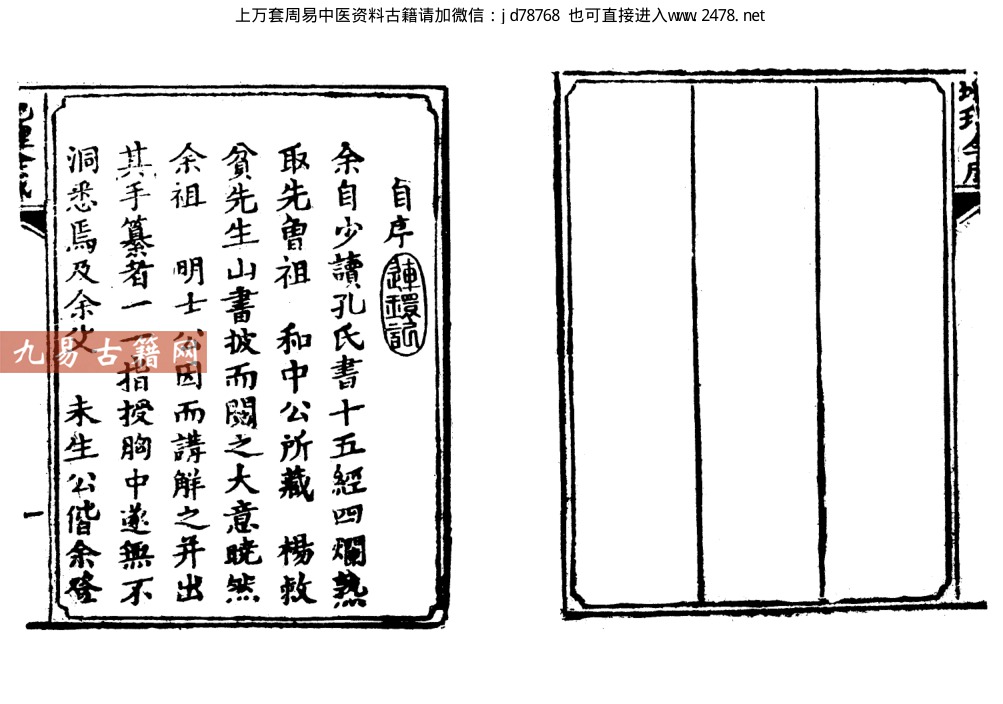 上万套周易中医资料古籍请加微信：jd78768 也可直接进入www.2478.net
自序
余自少讀孔氏書十五經四爛熟
取先曾祖 和中公所藏 楊救
貧先生山書披而閱之大意曉然
余祖 明士公因而講解之并出
其手纂者一一指授胸中遂無不
洞悉焉及余父 未生公偕余登
一
九易古籍网